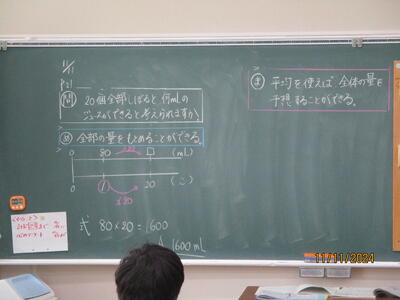 11/11
P21
問 20個全部しぼると何mLの
ジュースができると考えられますか。
め 全部の量をもとめることができる。
0 80 □ (mL)
×20
0 1 20 (こ)
×20
式 80×20=1600
A 1600mL
ま 平均を使えば全体の量を
予想することができる。
11/11/2024